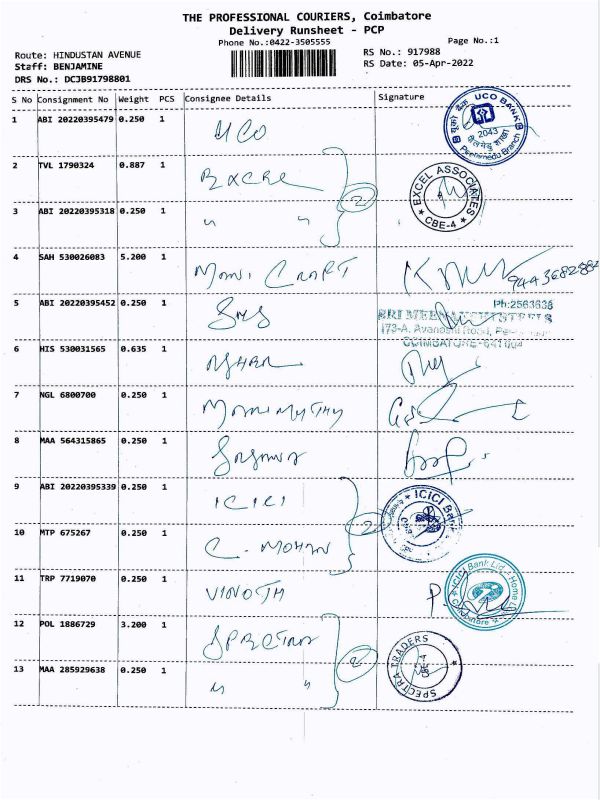 THE PROFESSIONAL COURIERS, Coimbatore
Delivery Runsheet - PCP
Phone No.:0422-3505555
Page No.:1
Route: HINDUSTAN AVENUE
Staff: BENJAMINE
DRS No.: DCJB91798801
RS No.: 917988
RS Date: 05-Apr-2022
S No Consignment No Weight PCS Consignee Details Signature
1 ABI 20220395479 0.250 1 UCO
यूको बैंक UCO BANK 2043 Peelamedu Branch
2 TVL 1790324 0.887 1 EXCEL
2
EXCEL ASSOCIATES CBE-4
3 ABI 20220395318 0.250 1 " "
4 SAH 530026083 5.200 1 MONI CRAFT
5 ABI 20220395452 0.250 1 SMS
Ph:2563636
SRI MEENAKSHI STEELS
173-A, Avanashi Road,
COIMBATORE-641004
6 HIS 530031565 0.635 1
7 NGL 6800700 0.250 1
8 MAA 564315865 0.250 1
9 ABI 20220395339 0.250 1 ICICI
2
ICICI Bank
10 MTP 675267 0.250 1 C. MOHAN
11 TRP 7719070 0.250 1 VINOTH
ICICI Bank Ltd. Home
12 POL 1886729 3.200 1 SPECTRA
2
SPECTRA TRADERS CBE-4
13 MAA 285929638 0.250 1 " "